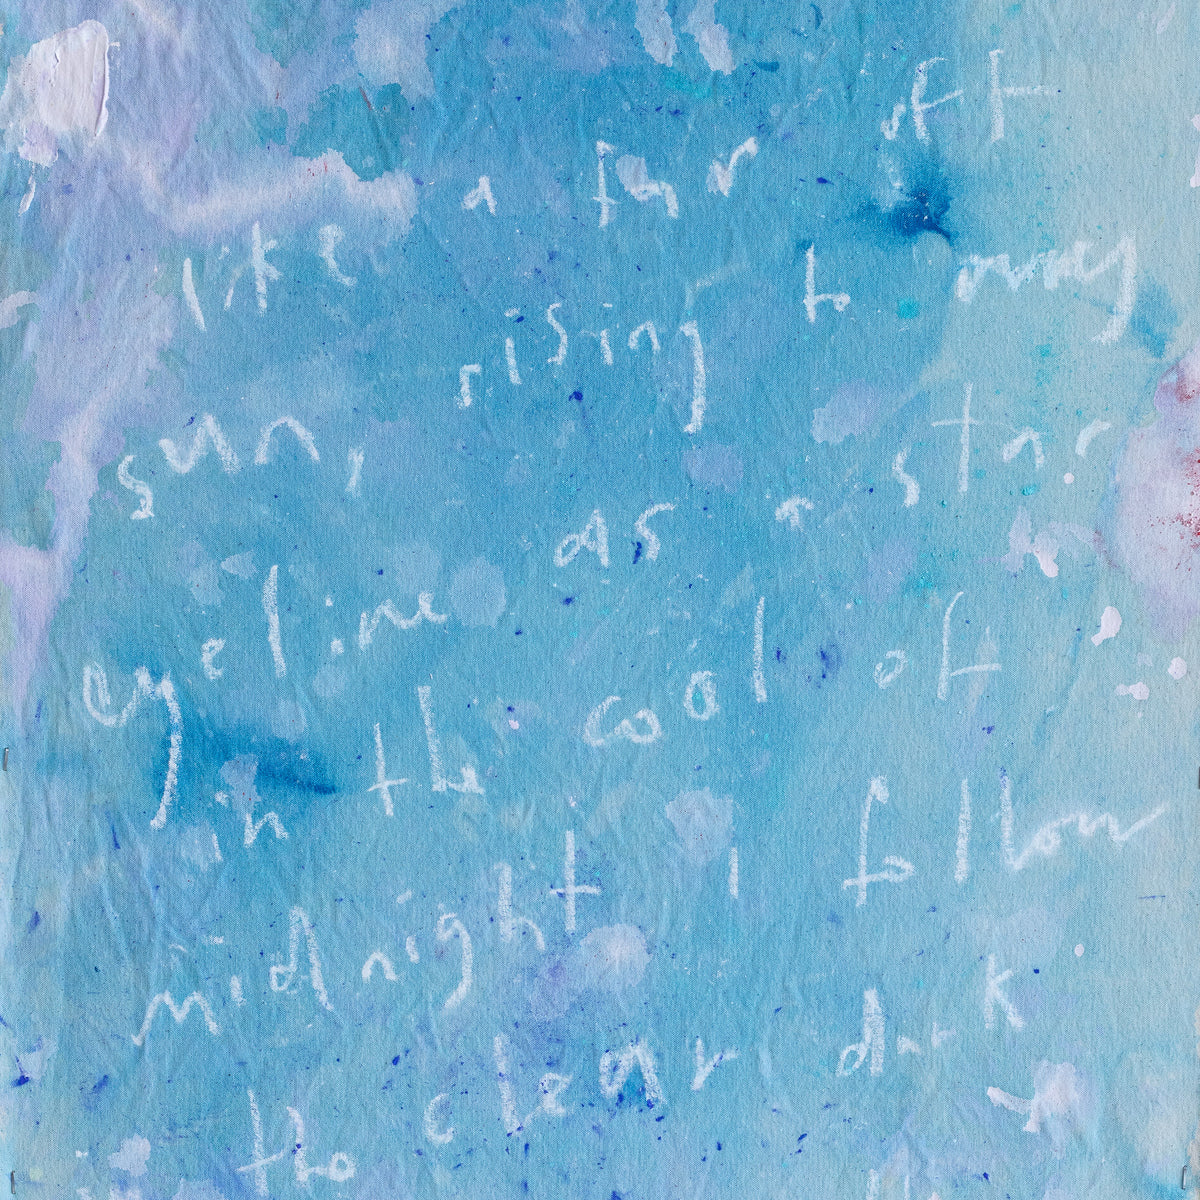 like a far off
sun, rising to my
eyeline as a star
in the cool of
midnight i follow
the clear dark